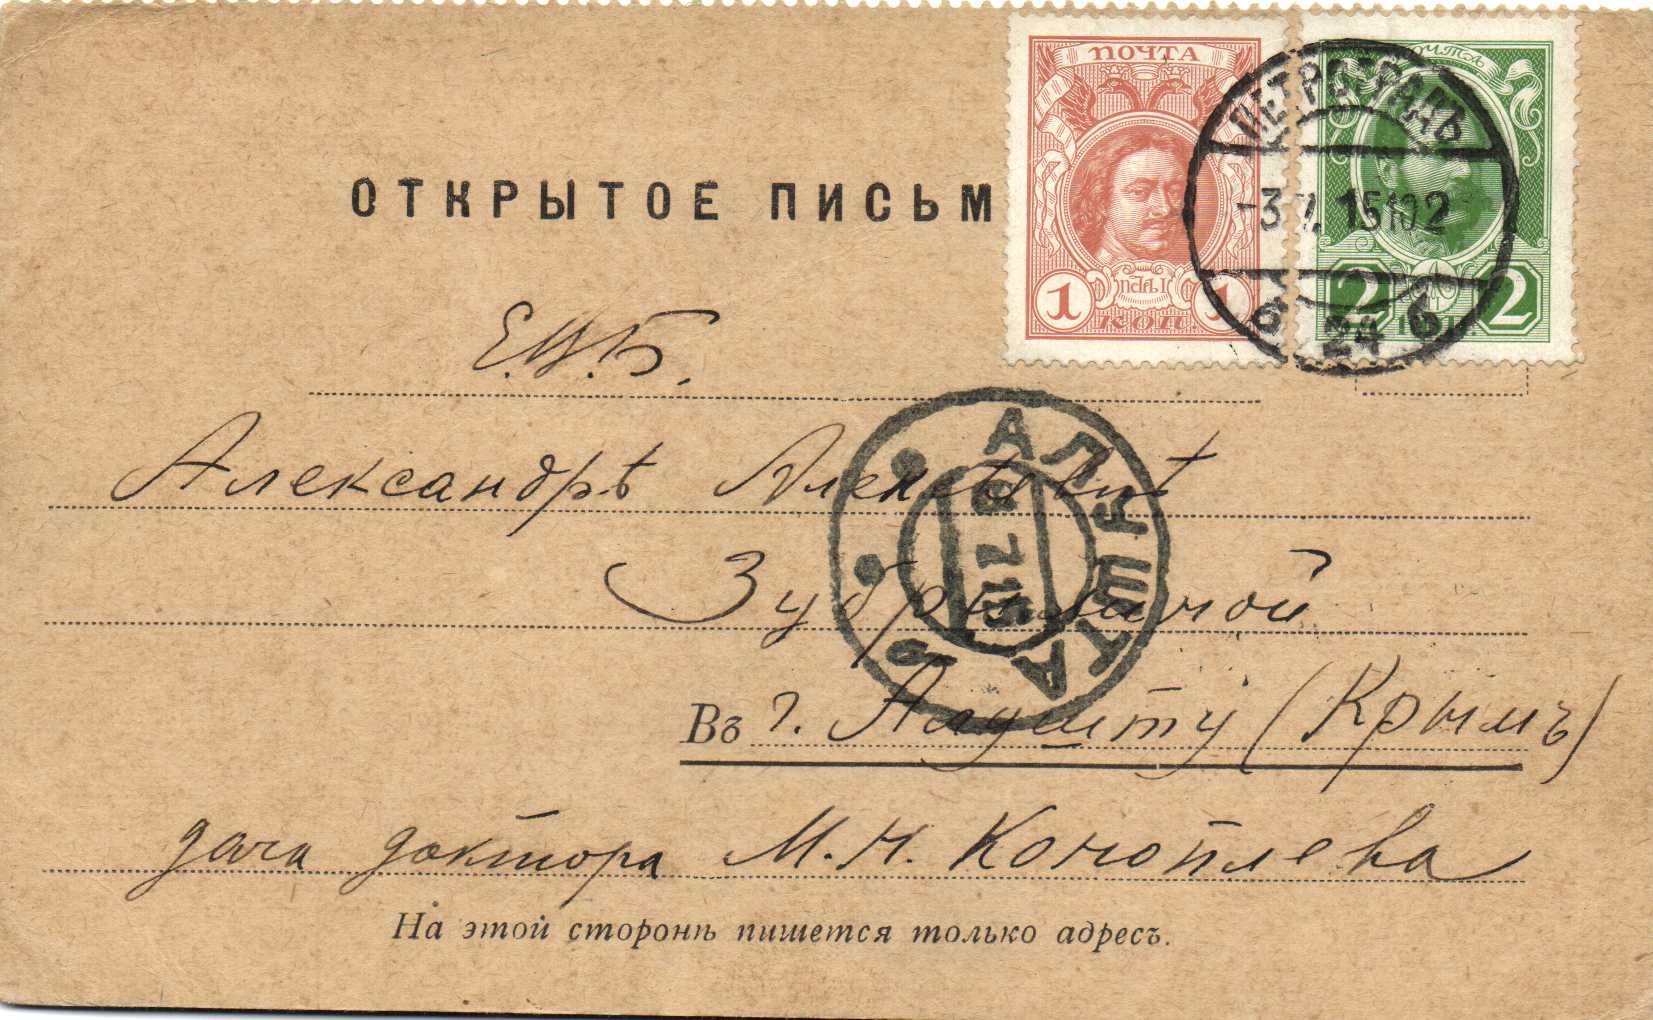 ПОЧТА
ПОЧТА
ОТКРЫТОЕ ПИСЬМ
ПЕТРОГРАДЪ
-3 15 10 2
б 24 б
1 1
КОП.
2 2
Е.В.Б.
Александрѣ Алексѣевнѣ
Зубрилиной
АЛУШТА
8 7 15
Въ г. Алушту (Крымъ)
дача доктора М.Н. Коноплева
На этой сторонѣ пишется только адресъ.